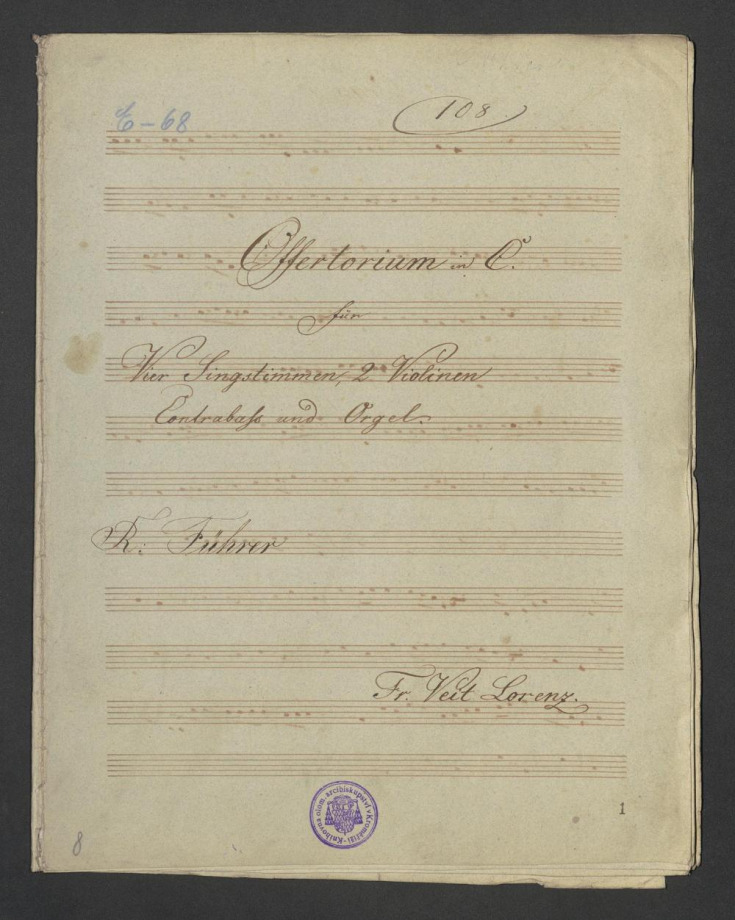 E-68
108.
Offertorium in C.
für
Vier Singstimmen, 2 Violinen
Contrabaß und Orgel.
R: Führer
Fr. Veit Lorenz.
Knihovna olom. arcibiskupství v Kroměříži
1
8